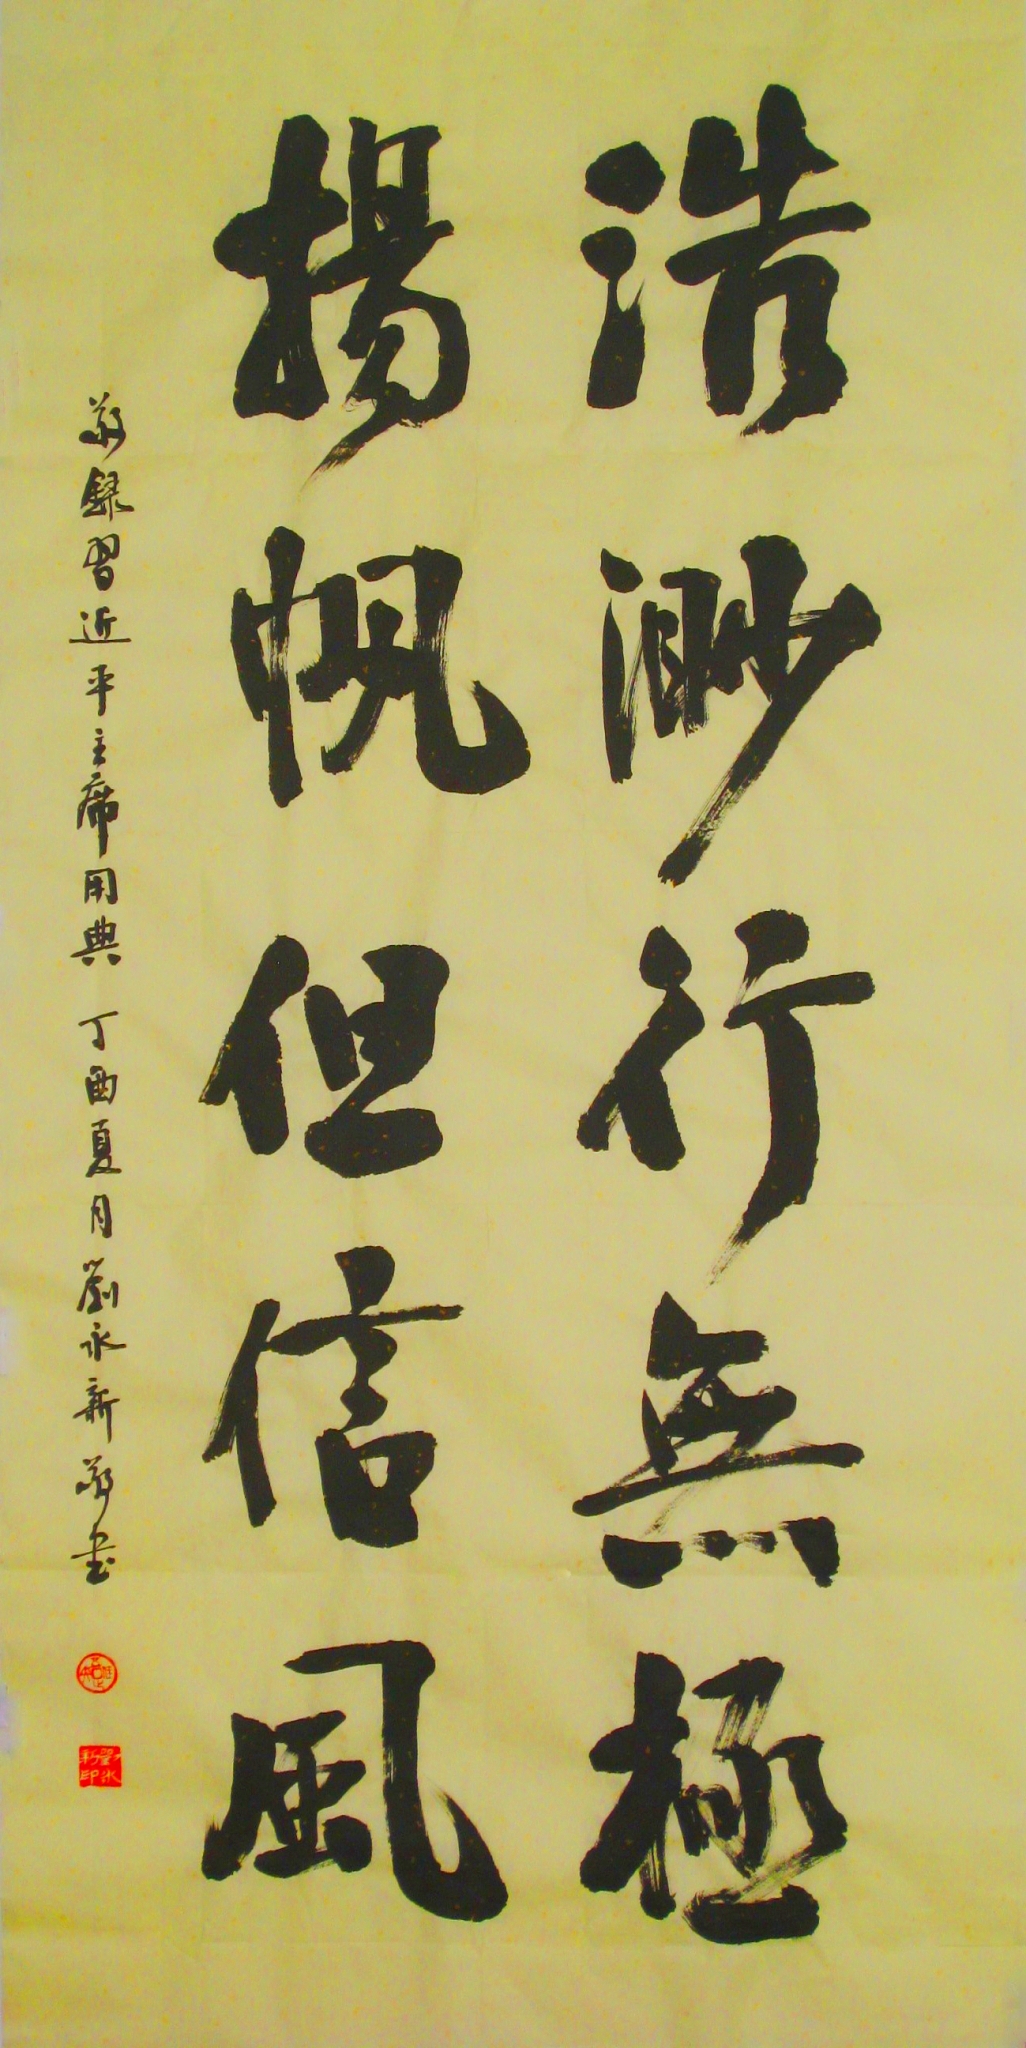 浩渺行無極
揚帆但信風
敬録習近平主席用典 丁酉夏月劉永新敬書
劉永新印